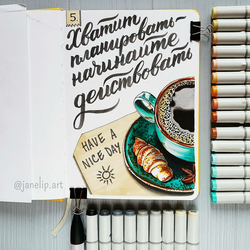 5.
Хватит
планировать
начинайте
действовать
HAVE A
NICE DAY
@janelip.art